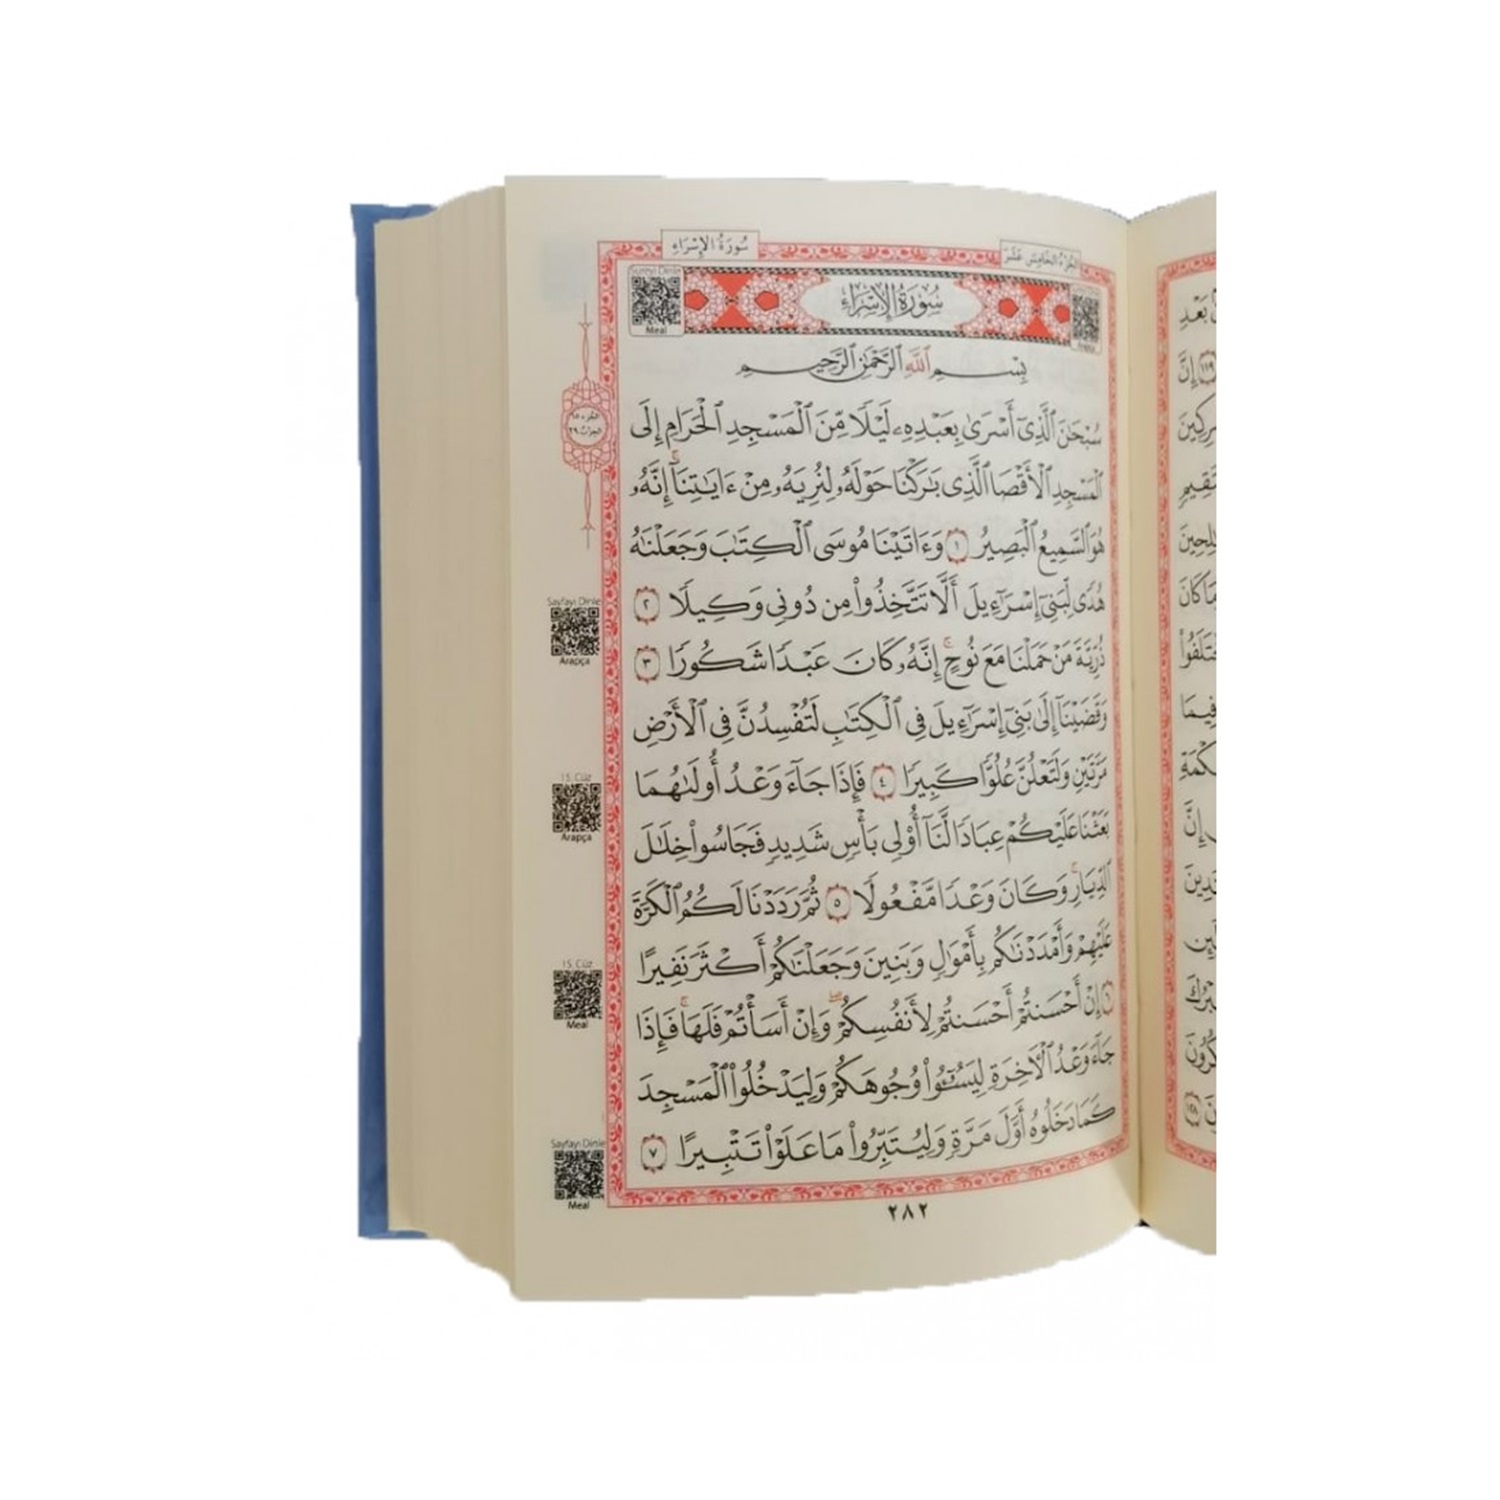 سُورَةُ الإِسْرَاءِ
الجُزْءُ الخَامِسَ عَشَرَ
Sureyi Dinle
Meal
سُورَةُ الإِسْرَاءِ
بِسْمِ ٱللَّهِ ٱلرَّحْمَٰنِ ٱلرَّحِيمِ
سُبْحَٰنَ ٱلَّذِىٓ أَسْرَىٰ بِعَبْدِهِۦ لَيْلًا مِّنَ ٱلْمَسْجِدِ ٱلْحَرَامِ إِلَى
ٱلْمَسْجِدِ ٱلْأَقْصَا ٱلَّذِى بَٰرَكْنَا حَوْلَهُۥ لِنُرِيَهُۥ مِنْ ءَايَٰتِنَآ ۚ إِنَّهُۥ
هُوَ ٱلسَّمِيعُ ٱلْبَصِيرُ ١ وَءَاتَيْنَا مُوسَى ٱلْكِتَٰبَ وَجَعَلْنَٰهُ
هُدًى لِّبَنِىٓ إِسْرَٰٓءِيلَ أَلَّا تَتَّخِذُوا۟ مِن دُونِى وَكِيلًا ٢
ذُرِّيَّةَ مَنْ حَمَلْنَا مَعَ نُوحٍ ۚ إِنَّهُۥ كَانَ عَبْدًا شَكُورًا ٣
وَقَضَيْنَآ إِلَىٰ بَنِىٓ إِسْرَٰٓءِيلَ فِى ٱلْكِتَٰبِ لَتُفْسِدُنَّ فِى ٱلْأَرْضِ
مَرَّتَيْنِ وَلَتَعْلُنَّ عُلُوًّا كَبِيرًا ٤ فَإِذَا جَآءَ وَعْدُ أُولَىٰهُمَا
بَعَثْنَا عَلَيْكُمْ عِبَادًا لَّنَآ أُو۟لِى بَأْسٍ شَدِيدٍ فَجَاسُوا۟ خِلَٰلَ
ٱلدِّيَارِ ۚ وَكَانَ وَعْدًا مَّفْعُولًا ٥ ثُمَّ رَدَدْنَا لَكُمُ ٱلْكَرَّةَ
عَلَيْهِمْ وَأَمْدَدْنَٰكُم بِأَمْوَٰلٍ وَبَنِينَ وَجَعَلْنَٰكُمْ أَكْثَرَ نَفِيرًا
٦ إِنْ أَحْسَنتُمْ أَحْسَنتُمْ لِأَنفُسِكُمْ ۖ وَإِنْ أَسَأْتُمْ فَلَهَا ۚ فَإِذَا
جَآءَ وَعْدُ ٱلْءَاخِرَةِ لِيَسُۥٓـُٔوا۟ وُجُوهَكُمْ وَلِيَدْخُلُوا۟ ٱلْمَسْجِدَ
كَمَا دَخَلُوهُ أَوَّلَ مَرَّةٍ وَلِيُتَبِّرُوا۟ مَا عَلَوْا۟ تَتْبِيرًا ٧
٢٨٢
Sayfayı Dinle
Arapça
15. Cüz
Arapça
15. Cüz
Meal
Sayfayı Dinle
Meal
بَعْدِ
١١٩ إِنَّ
مَا كَانَ
فِيمَا
إِنَّ
١٢٨